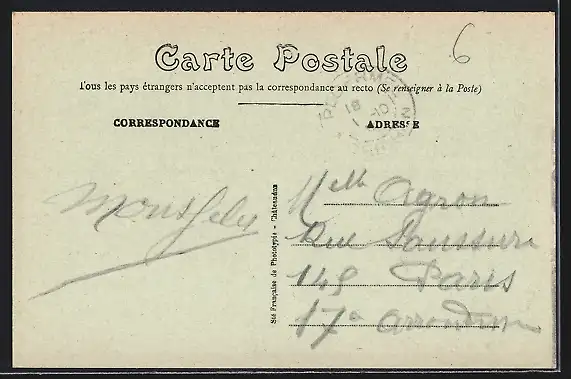 6
Carte Postale
Tous les pays étrangers n'acceptent pas la correspondance au recto (Se renseigner à la Poste)
CORRESPONDANCE
ADRESSE
Sté Française de Phototypie - Châteaudun
Melle Agron
Rue Saussure
145 Paris
17e